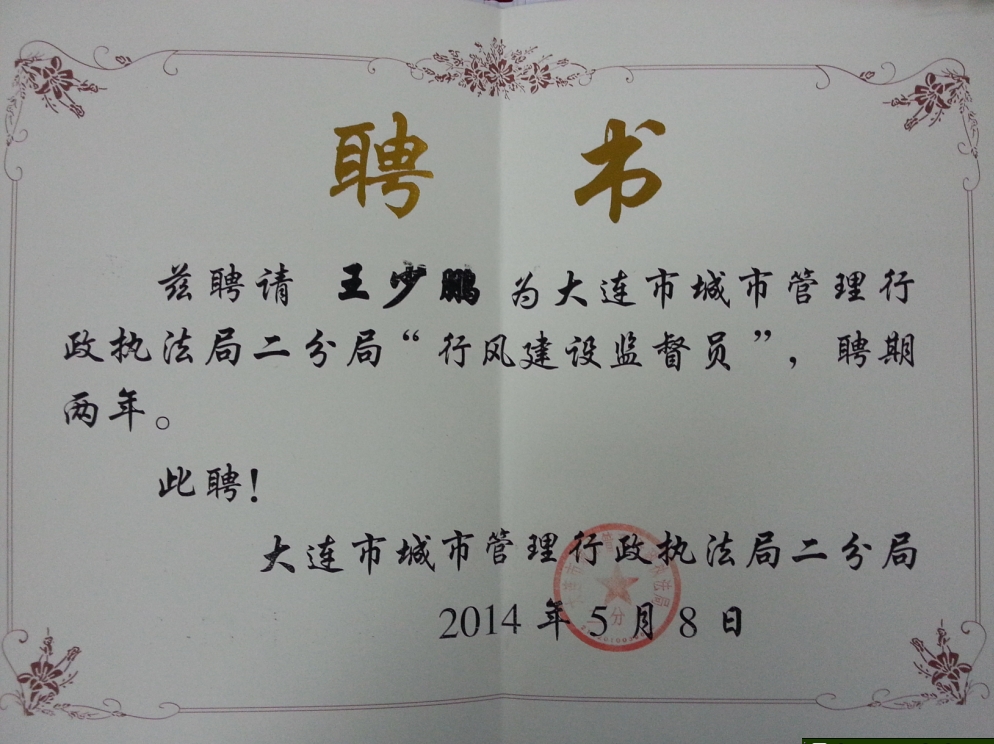 聘 书
兹聘请 王少鹏 为大连市城市管理行
政执法局二分局“行风建设监督员”，聘期
两年。
此聘！
大连市城市管理行政执法局二分局
2014 年 5 月 8 日